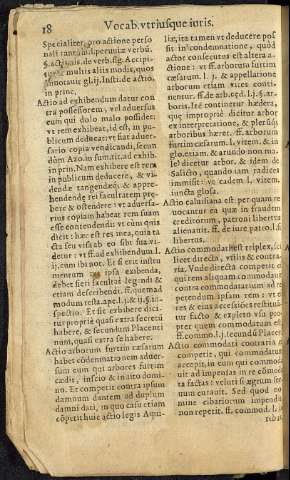 18 Vocab. vtriusque iuris.
Specialiter, pro actione perso
nali tantum per
§. de verb. sig. Accipi-
multis aliis modis, quos
glij. Insti. de actio.
in princ.
Actio ad exhibendum datur con
tra possessorem, vel aduersus
eum qui dolo malo possidet:
vt rem exhibeat, id est, in pu-
blicum deducat: vt fiat aduer-
sario copia vendicandi, secun
dùm Azo. in summa ad exhib.
in prin. Nam exhibere est rem
in publicum deducere, & vi-
dendę tangendęq; & appre-
hendendę rei facultatem præ-
bere & ostendere: vt aduersa-
rius copiam habeat rem suam
esse contendendi: vt cùm quis
dicit: hæc est res mea, quia ta
cta seu visa ab eo sibi sua vi-
detur: vt ff. ad exhibendum l.
ij. cum ibi not. Et si erit instru
mentum ipsa exhibenda,
debet fieri facultas legendi &
etiam describendi. ff. quemad
modum testa. ape. l. j. & ij. §. in-
spectio. Et sic exhibere dici-
tur propriè quasi extra secretū
habere, & secundum Placenti
num, quasi extra se habere.
Actio arborum furtim cæsarum
habet condemnationem aduer-
sum eum qui arbores furtim
cædit, inscio & inuito domi-
no. Et competit contra ipsum
damnum dantem ad duplum
damni dati, in quo casu etiam
competit huic actio legis Aqui-
liæ, ita tamen vt deducere pos
sit in condemnatione, quòd
actor consecutus est altera a-
ctione: vt ff. arborum furtim
cæsarum. l. j. & appellatione
arborum etiam vites conti-
nentur. ff. de arb. cęd. l. j. §. ar-
boris. Itē continetur hædera,
quę impropriè dicitur arbor
ex interpretatione, & plerūq;
arboribus hæret. ff. arborum
furtim cæsarum. l. vitem. & in
glo. etiam. & arundo non ma-
lè dicetur arbor, & idem de
Salicto, quando iam radices
immisit: vt eadem l. vitem,
iuncta glosa.
Actio caluisiana est per quam re
uocantur ea quæ in fraudem
creditorum, patroni libertus
alienauit. ff. de iure patro. l.
libertus.
Actio commodati est triplex, sci
licet directa, vtilis & contra-
ria. Vnde directa competit ei
qui rem aliquam commodat
contra commodatarium ad re
petendum ipsam rem: vt
res & eius accessiōes restitua
tur facto & expleto vsu pro
pter quem commodatum est.
ff. commo. l. j. secundū Placen.
Actio commodati contraria
competit, qui commodatum
accepit, in eum qui commoda
uit ad impensas in re cōmoda
ta factas: veluti si ægrum ser-
uum curauit. Sed quod no-
mine cibariorum impendit
non repetit. ff. commod. l. in